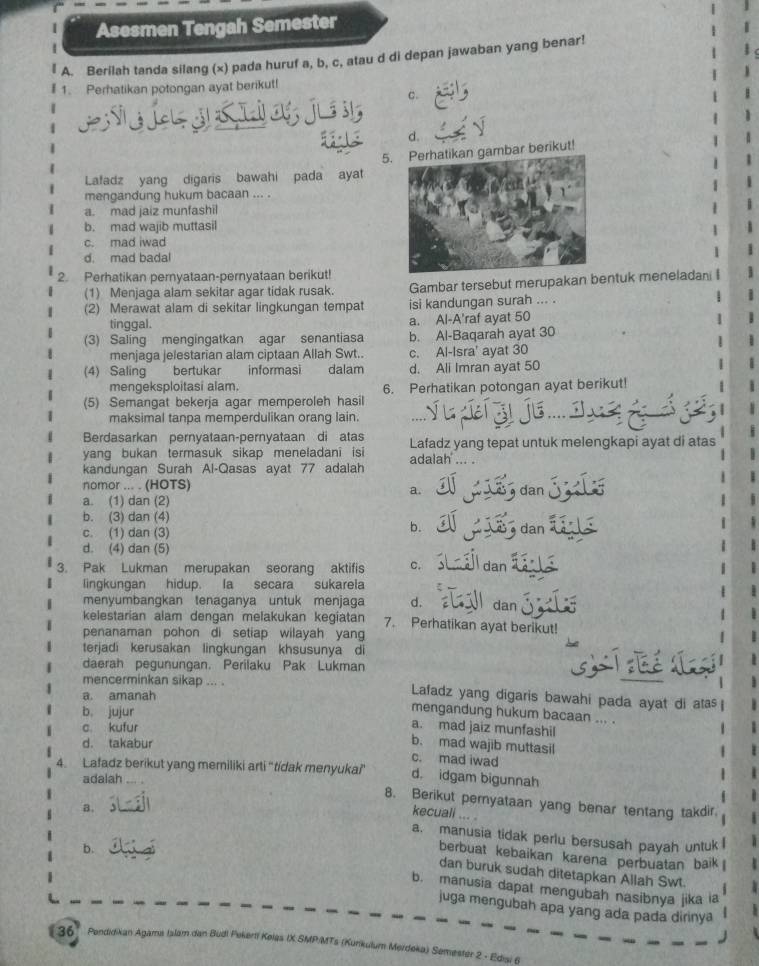 Asesmen Tengah Semester
A. Berilah tanda silang (×) pada huruf a, b, c, atau d di depan jawaban yang benar!
1. Perhatikan potongan ayat berikut!
وَإِذْ قَالَ رَبُّكَ لِلْمَلٰٓئِكَةِ إِنِّي جَاعِلٌ فِي الْأَرْضِ
خَلِيفَةً
Lafadz yang digaris bawahi pada ayat
mengandung hukum bacaan ... .
a. mad jaiz munfashil
b. mad wajib muttasil
c. mad iwad
d. mad badal
2. Perhatikan pernyataan-pernyataan berikut!
(1) Menjaga alam sekitar agar tidak rusak.
(2) Merawat alam di sekitar lingkungan tempat
tinggal.
(3) Saling mengingatkan agar senantiasa
menjaga jelestarian alam ciptaan Allah Swt..
(4) Saling bertukar informasi dalam
mengeksploitasi alam.
(5) Semangat bekerja agar memperoleh hasil
maksimal tanpa memperdulikan orang lain.
Berdasarkan pernyataan-pernyataan di atas
yang bukan termasuk sikap meneladani isi
kandungan Surah Al-Qasas ayat 77 adalah
nomor ... . (HOTS)
a. (1) dan (2)
b. (3) dan (4)
c. (1) dan (3)
d. (4) dan (5)
3. Pak Lukman merupakan seorang aktifis
lingkungan hidup. Ia secara sukarela
menyumbangkan tenaganya untuk menjaga
kelestarian alam dengan melakukan kegiatan
penanaman pohon di setiap wilayah yang
terjadi kerusakan lingkungan khsusunya di
daerah pegunungan. Perilaku Pak Lukman
mencerminkan sikap ... .
a. amanah
b. jujur
c. kufur
d. takabur
4. Lafadz berikut yang memiliki arti "tidak menyukai"
adalah ... .
a. الْفَسَادَ
b. نَصِيْبَكَ
c.
d. لَا يُحِبُّ
5. Perhatikan gambar berikut!
Gambar tersebut merupakan bentuk meneladani
isi kandungan surah ... .
a. Al-A'raf ayat 50
b. Al-Baqarah ayat 30
c. Al-Isra' ayat 30
d. Ali Imran ayat 50
6. Perhatikan potongan ayat berikut!
وَنَحْنُ نُسَبِّحُ بِحَمْدِكَ .... قَالَ إِنِّي أَعْلَمُ مَا لَا ....
Lafadz yang tepat untuk melengkapi ayat di atas
adalah ... .
a. وَنُقَدِّسُ لَكَ dan تَعْلَمُوْنَ
b. وَنُقَدِّسُ لَكَ dan خَلِيفَةً
c. الْفَسَادَ dan خَلِيفَةً
d. الدِّمَاءَ dan تَعْلَمُوْنَ
7. Perhatikan ayat berikut!
فَجَعَلَهُ غُثَاءً أَحْوَى
Lafadz yang digaris bawahi pada ayat di atas
mengandung hukum bacaan ... .
a. mad jaiz munfashil
b. mad wajib muttasil
c. mad iwad
d. idgam bigunnah
8. Berikut pernyataan yang benar tentang takdir,
kecuali ... .
a. manusia tidak perlu bersusah payah untuk
berbuat kebaikan karena perbuatan baik
dan buruk sudah ditetapkan Allah Swt.
b. manusia dapat mengubah nasibnya jika ia
juga mengubah apa yang ada pada dirinya
36 Pendidikan Agama Islam dan Budi Pekerti Kelas IX SMP/MTs (Kurikulum Merdeka) Semester 2 - Edisi 6